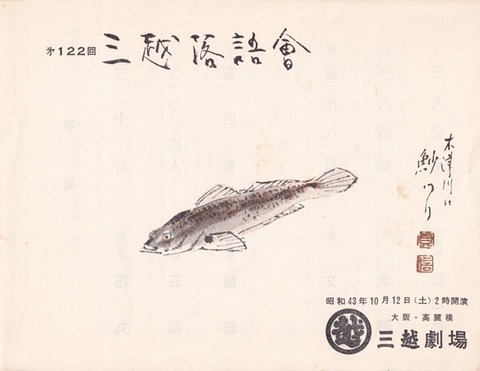 第122回 三越落語會
木津川口
鯊つり
昭和43年10月12日(土)2時開演
大阪・高麗橋
越 三越劇場